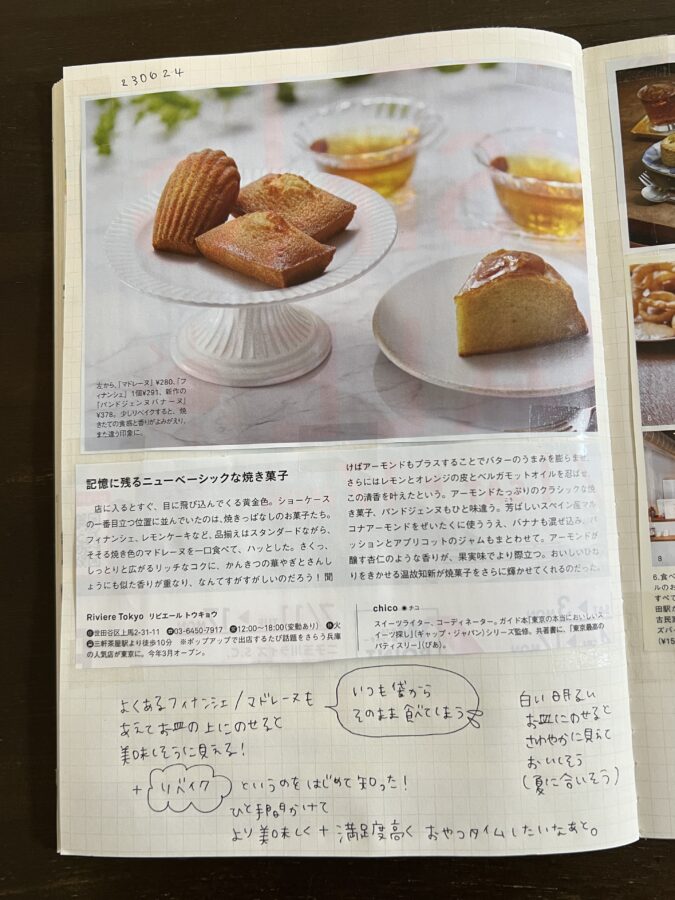 230624
左から、「マドレーヌ」¥280、「フ
ィナンシェ」1個¥291、新作の
「パンドジェンヌバナーヌ」
¥378。少しリベイクすると、焼
きたての食感と香りがよみがえり、
また違う印象に。
記憶に残るニューベーシックな焼き菓子
店に入るとすぐ、目に飛び込んでくる黄金色。ショーケース
の一番目立つ位置に並んでいたのは、焼きっぱなしのお菓子たち。
フィナンシェ、レモンケーキなど、品揃えはスタンダードながら、
そそる焼き色のマドレーヌを一口食べて、ハッとした。さくっ、
しっとりと広がるリッチなコクに、かんきつの華やぎとさんし
ょうにも似た香りが重なり、なんてすがすがしいのだろう！ 聞
けばアーモンドもプラスすることでバターのうまみを膨らませ、
さらにはレモンとオレンジの皮とベルガモットオイルを忍ばせ、
この清香を叶えたという。アーモンドたっぷりのクラシックな焼
き菓子、パンドジェンヌもひと味違う。芳ばしいスペイン産マル
コナアーモンドをぜいたくに使ううえ、バナナも混ぜ込み、パ
ッションとアプリコットのジャムもまとわせて。アーモンドが
醸す杏仁のような香りが、果実味でより際立つ。おいしいひね
りをきかせる温故知新が焼菓子をさらに輝かせてくれるのだった。
Riviere Tokyo リビエール トウキョウ
世田谷区上馬2-31-11 03-6450-7917 12:00〜18:00(変動あり) 火
三軒茶屋駅より徒歩10分 ※ポップアップで出店するたび話題をさらう兵庫
の人気店が東京に。今年3月オープン。
chico ●チコ
スイーツライター、コーディネーター。ガイド本「東京の本当においしいスイ
ーツ探し」(ギャップ・ジャパン)シリーズ監修。共著書に、「東京最高の
パティスリー」(ぴあ)。
よくあるフィナンシェ/マドレーヌも
あえてお皿の上にのせると
美味しそうに見える！
いつも袋から
そのまま食べてしまう
白い明るい
お皿にのせると
さわやかに見えて
おいしそう
(夏に合いそう)
+ リベイク というのをはじめて知った！
ひと手間かけて
より美味しく+満足度高く おやつタイムしたいなあと。
8
6.食べ
ルのお
すべて
田駅か
古民
ズバー
¥15